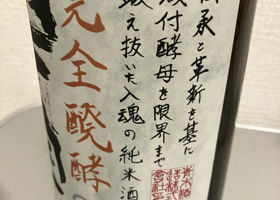 伝承と革新を基に
蔵付酵母を限界まで
鍛え抜いた入魂の純米酒
完全醗酵